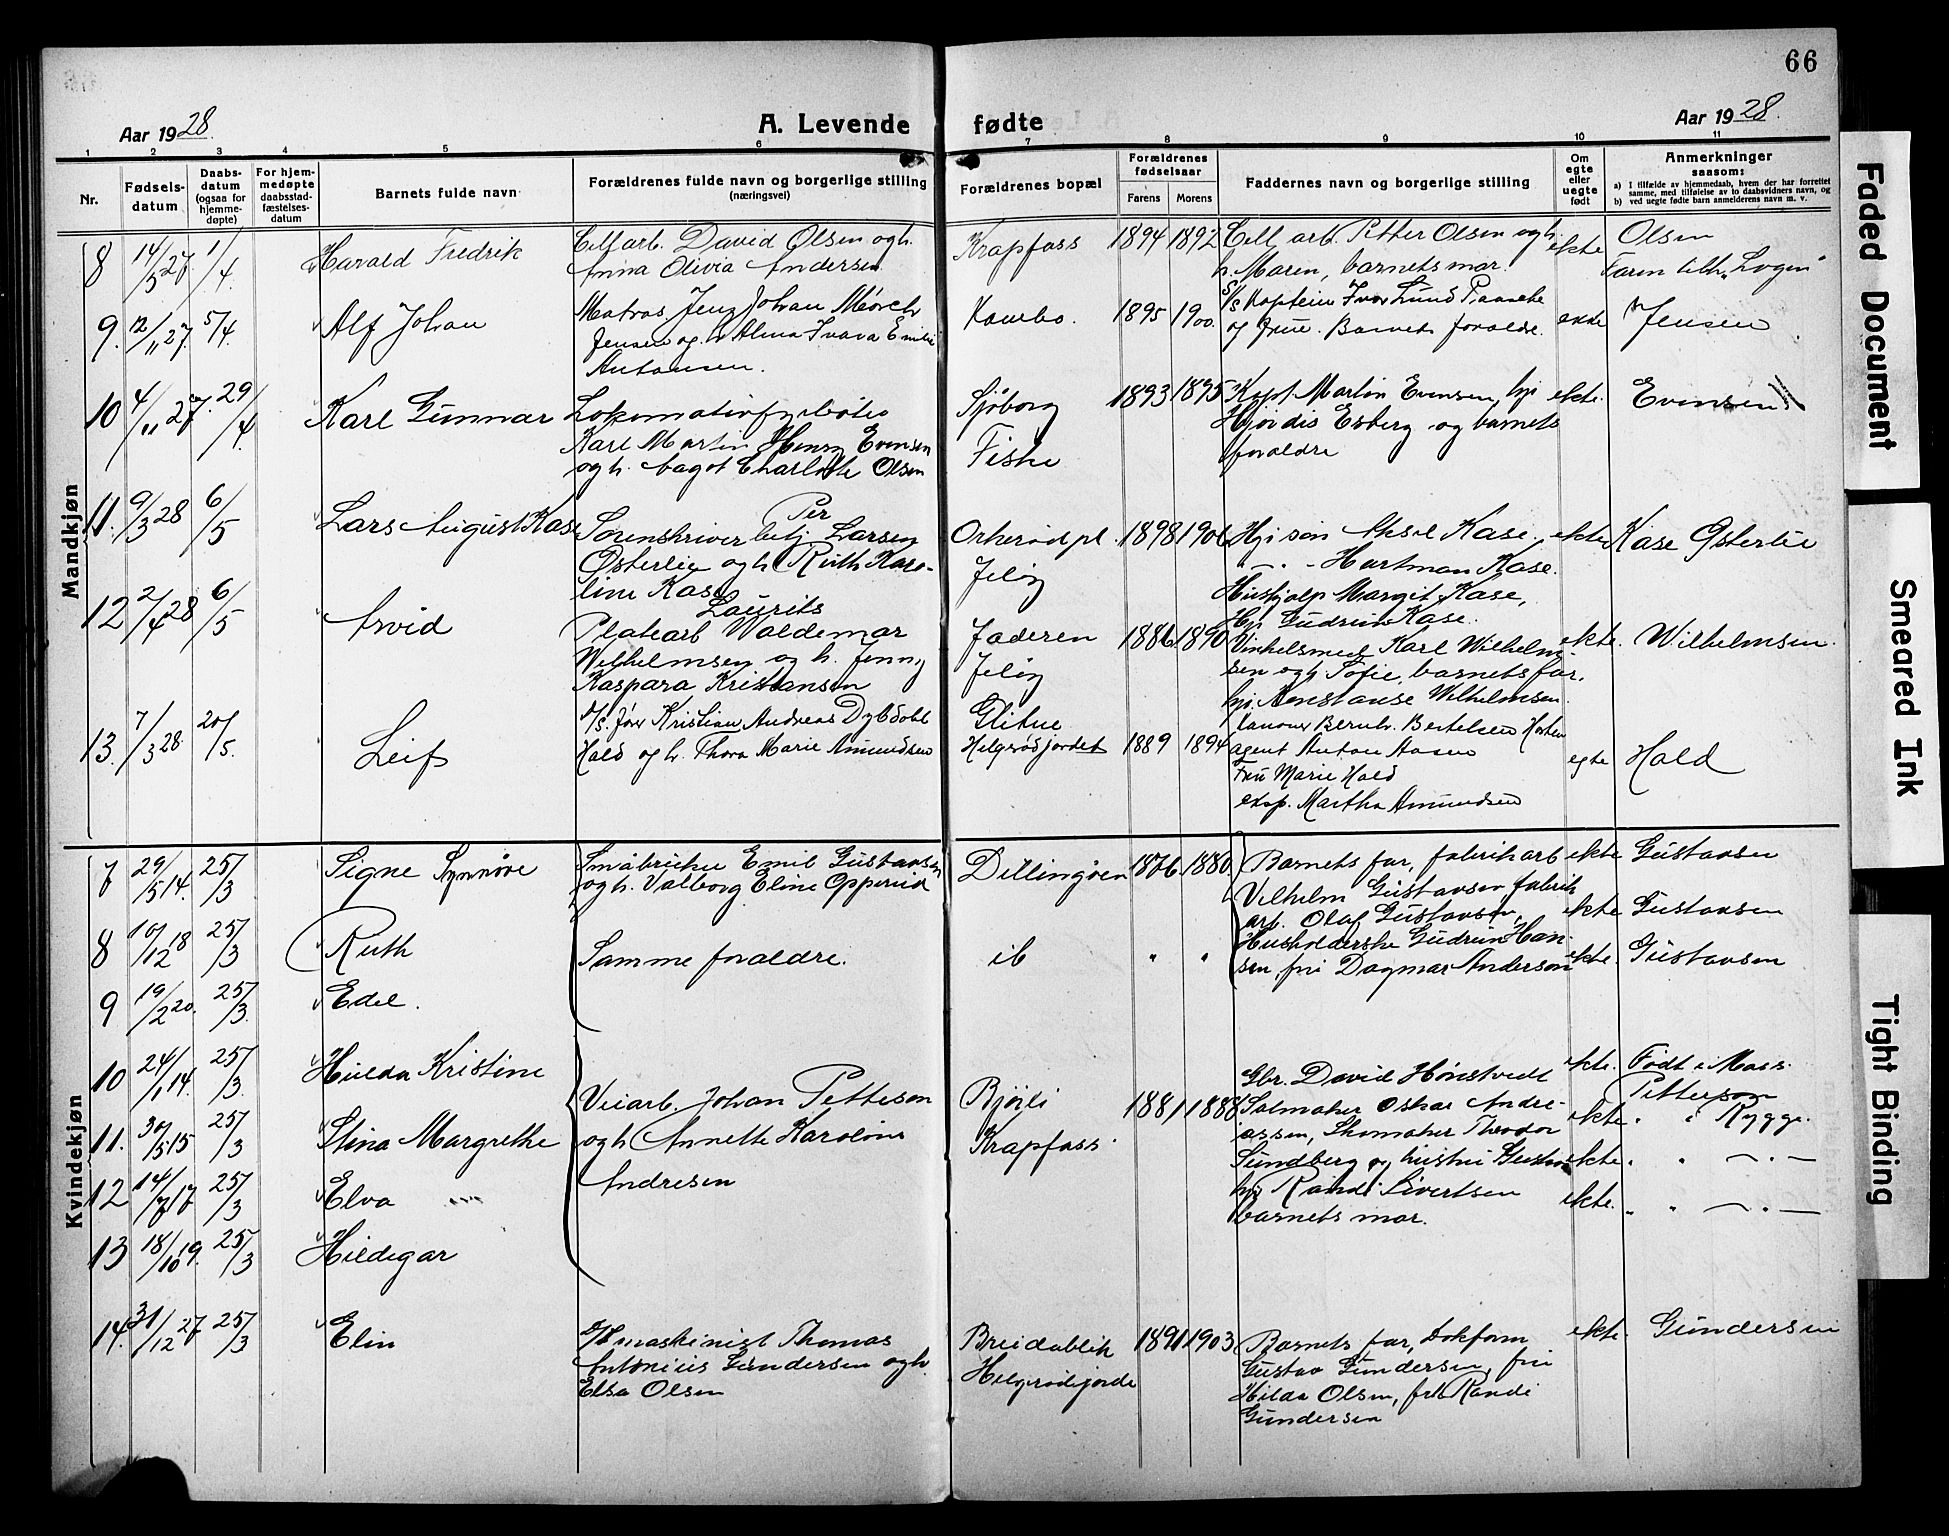 66
Aar 1928.
A. Levende fødte
Aar 1928.
1 2 3 4 5 6 7 8 9 10 11
Nr.
Fødsels-
datum
Daabs-
datum
(ogsaa for
hjemme-
døpte)
For hjem-
medøpte
daabsstad-
fæstelses-
datum
Barnets fulde navn
Forældrenes fulde navn og borgerlige stilling
(næringsvei)
Forældrenes bopæl
Forældrenes
fødselsaar
Farens Morens
Faddernes navn og borgerlige stilling
Om
egte
eller
uegte
født
Anmerkninger
saasom:
a) I tilfælde av hjemmedaab, hvem der har forrettet
samme, med tilføielse av to daabsvidners navn, og
b) ved uegte fødte barn anmelderens navn m. v.
Mandkjøn
8 14/5 27 1/4 Harald Fredrik
Cellarb. David Olsen og h.
Anna Olivia Andersen
Krapfoss 1894 1892
Cell. arb. Petter Olsen og h.
h. Maren, barnets mor.
ekte
Olsen
Faren tilh. "Logen"
9. 12/11 27. 5/4 Alf Johan
Matros Jens Johan Mörch
Jensen og h. Alma Ivara Emilie
Antonsen.
Kambo. 1895 1900.
S/S Kaptein Ivar Lund Paasche
og frue. Barnets foreldre.
Jensen
10 4/11 27. 29/4 Karl Gunnar
Lokomotivfyrböter
Karl Martin Henry Evensen
og h. Aagot Charlotte Olsen
Sjöborg
Fiske
1893 1895
Kapt. Martin Evensen, hj
Hjördis Esberg og barnets
foreldre
ekte.
Evensen
11. 9/3 28 6/5 Lars August Kase
Per
Sorenskriverbetj. Larsen
Österlie og h. Ruth Karo-
line Kase
Orkerödpl.
Jelöy
1898 1906
Hj. sön Aksel Kase.
" - . - Hartman Kase.
Hushjelp Margit Kase,
Hj. Gudrun Kase.
ekte
Kase Österlie
12 2/4 28 6/5 Arvid
Laurits
Platearb Waldemar
Wilhelmsen og h. Jenny
Kaspara Kristiansen
Jaderen
Jelöy
1886 1890
Vinkelsmed Karl Wilhelm-
sen og h. Sofie, barnets far,
hj. Konstanse Wilhelmsen.
ekte.
Wilhelmsen.
13. 7/3 28. 20/5. Leif
S/S. förer Kristian Andreas Dybdahl
Hald og h. Thora Marie Amundsen
Glitne
Helgerödjordet 1889 1894
Bernh. Bertelsen Horten
agent Anton Aasen
Fru Marie Hald
eksp. Martha Amundsen
egte
Hald
Kvindekjøn
7 29/5 14. 25/3 Signe Synnöve
Småbruker Emil Gustavsen
og h. Valborg Eline Opperud
Dillingöen 1876. 1880
Barnets far, fabrikarb
Vilhelm Gustavsen fabrik
arb. Olaf Gustavsen,
Husholderske Gudrun Han-
sen, fru Dagmar Anderson
ekte Gustavsen
8 10/12 18 25/3 Ruth
Samme foreldre.
ib " "
ekte Gustavsen
9 19/2 20. 25/3. Edel.
ekte. Gustavsen
10 24/1 14. 25/3. Hulda Kristine
ekte. Født i Moss.
Petterson
11. 30/5 15 25/3 Stina Margrethe
Veiarb. Johan Petterson
og h. Annette Karoline
Andresen
Bjöili
Krapfoss.
1881 1888
Gbr. David Hönstvedt
Salmaker Oskar Andre-
assen, Skomaker Theodor
Sundberg og hustru
hj. Randi Sivertsen
barnets mor.
ekte " " Rygge.
12 14/7 17 25/3 Elva
ekte. " " — . —
13 18/10 19. 25/3 Hildegar
ekte. " " — . —
14. 31/12 27 25/3 Elin
S/S maskinist Thomas
Antonius Gundersen og h.
Elsa Olsen
Breidablik
Helgerödjorde
1891 1903
Barnets far, Dokform
Gustav Gundersen, fru
Hilda Olsen, frk Randi
Gundersen
ekte.
Gundersen
Faded Document
Smeared Ink
Tight Binding